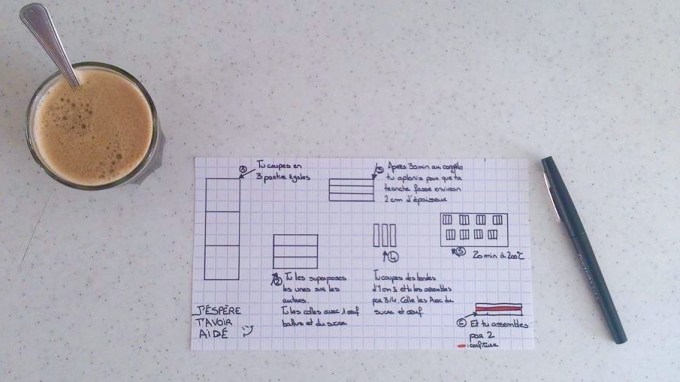 ① Tu coupes en
3 partie égales
② Tu les superposes
les unes sur les
autres.
Tu les colles avec 1 oeuf
battus et du sucre
③ Après 30 min au congélo
tu aplatis pour que ta
tranche fasse environ
2 cm d'épaisseur
④
Tu coupes des bandes
d'1 cm 5 et tu les assembles
par 3/4. Colle les avec du
sucre et oeuf.
⑤ 20 min à 200°C
⑥ Et tu assembles
par 2
confiture
J'ÉSPÈRE
T'AVOIR
AIDÉ